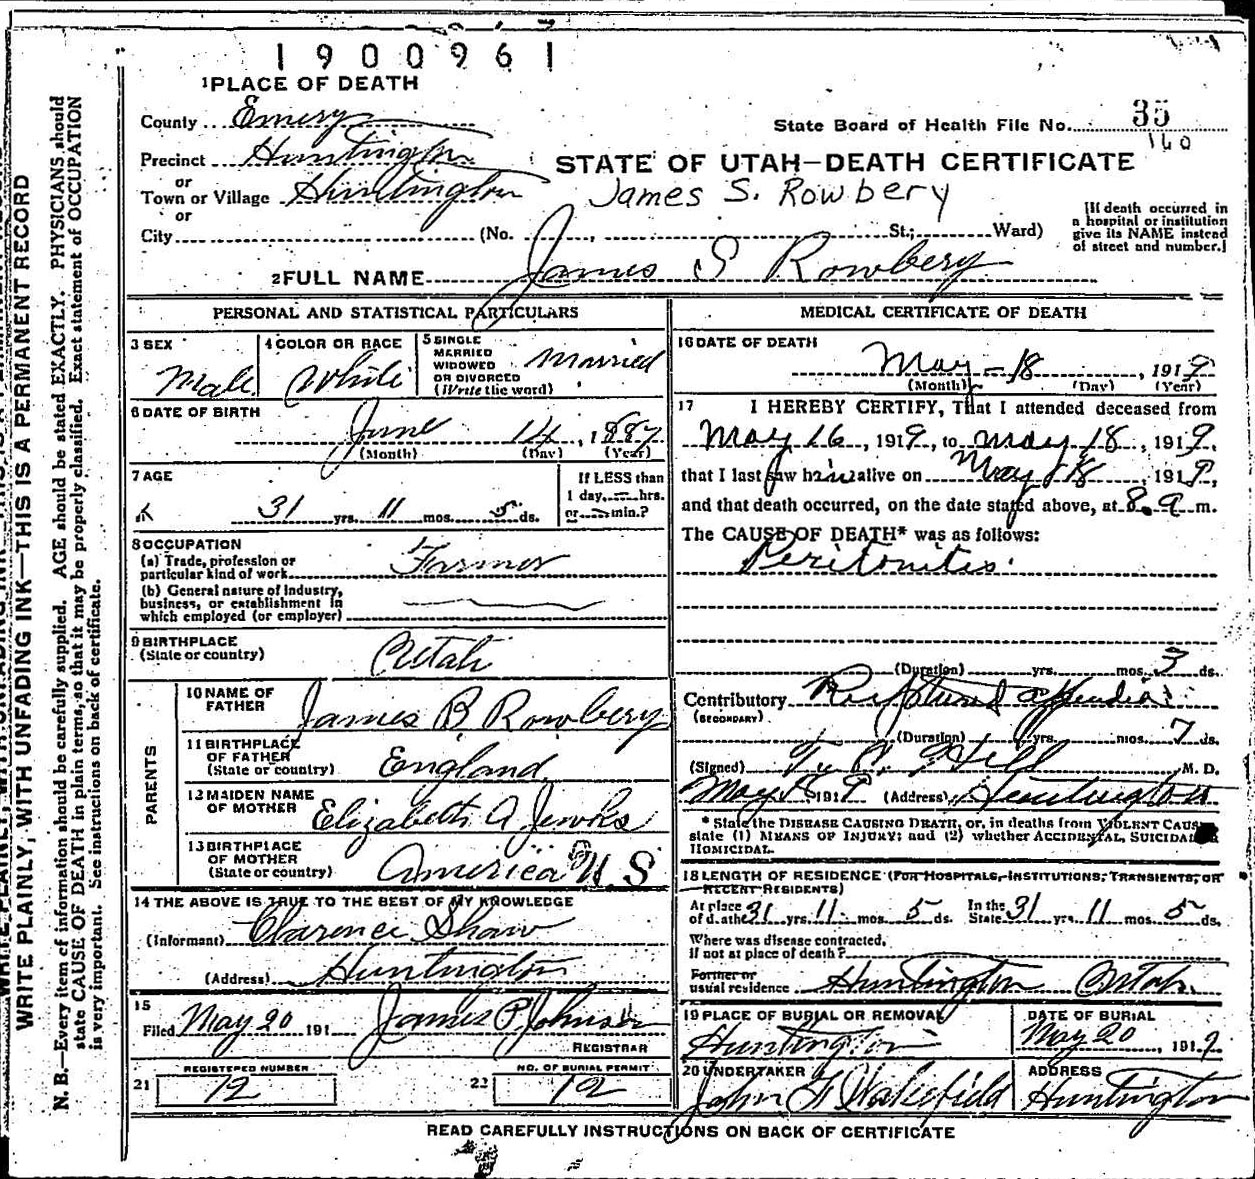 1900961
1 PLACE OF DEATH
County Emery
State Board of Health File No. 35
160
Precinct Huntington
or
Town or Village Huntington
or
STATE OF UTAH—DEATH CERTIFICATE
James S. Rowbery
City (No. , St.; Ward)
[If death occurred in
a hospital or institution
give its NAME instead
of street and number.]
2 FULL NAME James S Rowbery
PERSONAL AND STATISTICAL PARTICULARS
3 SEX Male
4 COLOR OR RACE White
5 SINGLE
MARRIED
WIDOWED
OR DIVORCED
(Write the word) Married
6 DATE OF BIRTH
June 14, 1887
(Month) (Day) (Year)
7 AGE
31 yrs. 11 mos. 5 ds.
If LESS than
1 day, hrs.
or min.?
8 OCCUPATION
(a) Trade, profession or
particular kind of work Farmer
(b) General nature of industry,
business, or establishment in
which employed (or employer)
9 BIRTHPLACE
(State or country) Utah
PARENTS
10 NAME OF
FATHER James B Rowbery
11 BIRTHPLACE
OF FATHER
(State or country) England
12 MAIDEN NAME
OF MOTHER Elizabeth A Jewks
13 BIRTHPLACE
OF MOTHER
(State or country) America U.S
14 THE ABOVE IS TRUE TO THE BEST OF MY KNOWLEDGE
(Informant) Clarence Shaw
(Address) Huntington
15
Filed May 20 191 James P Johnson
REGISTRAR
REGISTERED NUMBER
21 12
NO. OF BURIAL PERMIT
22 12
MEDICAL CERTIFICATE OF DEATH
16 DATE OF DEATH
May - 18, 1919
(Month) (Day) (Year)
17 I HEREBY CERTIFY, That I attended deceased from
May 16, 1919, to May 18, 1919,
that I last saw him alive on May 18, 1919,
and that death occurred, on the date stated above, at 8. a m.
The CAUSE OF DEATH* was as follows:
Peritonitis
(Duration) yrs. mos. 3 ds.
Contributory Ruptured appendix
(SECONDARY)
(Duration) yrs. mos. 7 ds.
(Signed) Hill M. D.
May 18 1919 (Address) Huntington
* State the DISEASE CAUSING DEATH, or, in deaths from VIOLENT CAUSES
state (1) MEANS OF INJURY; and (2) whether ACCIDENTAL, SUICIDAL OR
HOMICIDAL.
18 LENGTH OF RESIDENCE (FOR HOSPITALS, INSTITUTIONS, TRANSIENTS, OR
RECENT RESIDENTS)
At place
of death 31 yrs. 11 mos. 5 ds. In the
State 31 yrs. 11 mos. 5 ds.
Where was disease contracted,
if not at place of death?
Former or
usual residence Huntington Utah
19 PLACE OF BURIAL OR REMOVAL
Huntington
DATE OF BURIAL
May 20, 1919
20 UNDERTAKER
John F Wakefield
ADDRESS
Huntington
READ CAREFULLY INSTRUCTIONS ON BACK OF CERTIFICATE
WRITE PLAINLY, WITH UNFADING INK—THIS IS A PERMANENT RECORD
N. B.—Every item of information should be carefully supplied. AGE should be stated EXACTLY. PHYSICIANS should
state CAUSE OF DEATH in plain terms, so that it may be properly classified. Exact statement of OCCUPATION
is very important. See instructions on back of certificate.